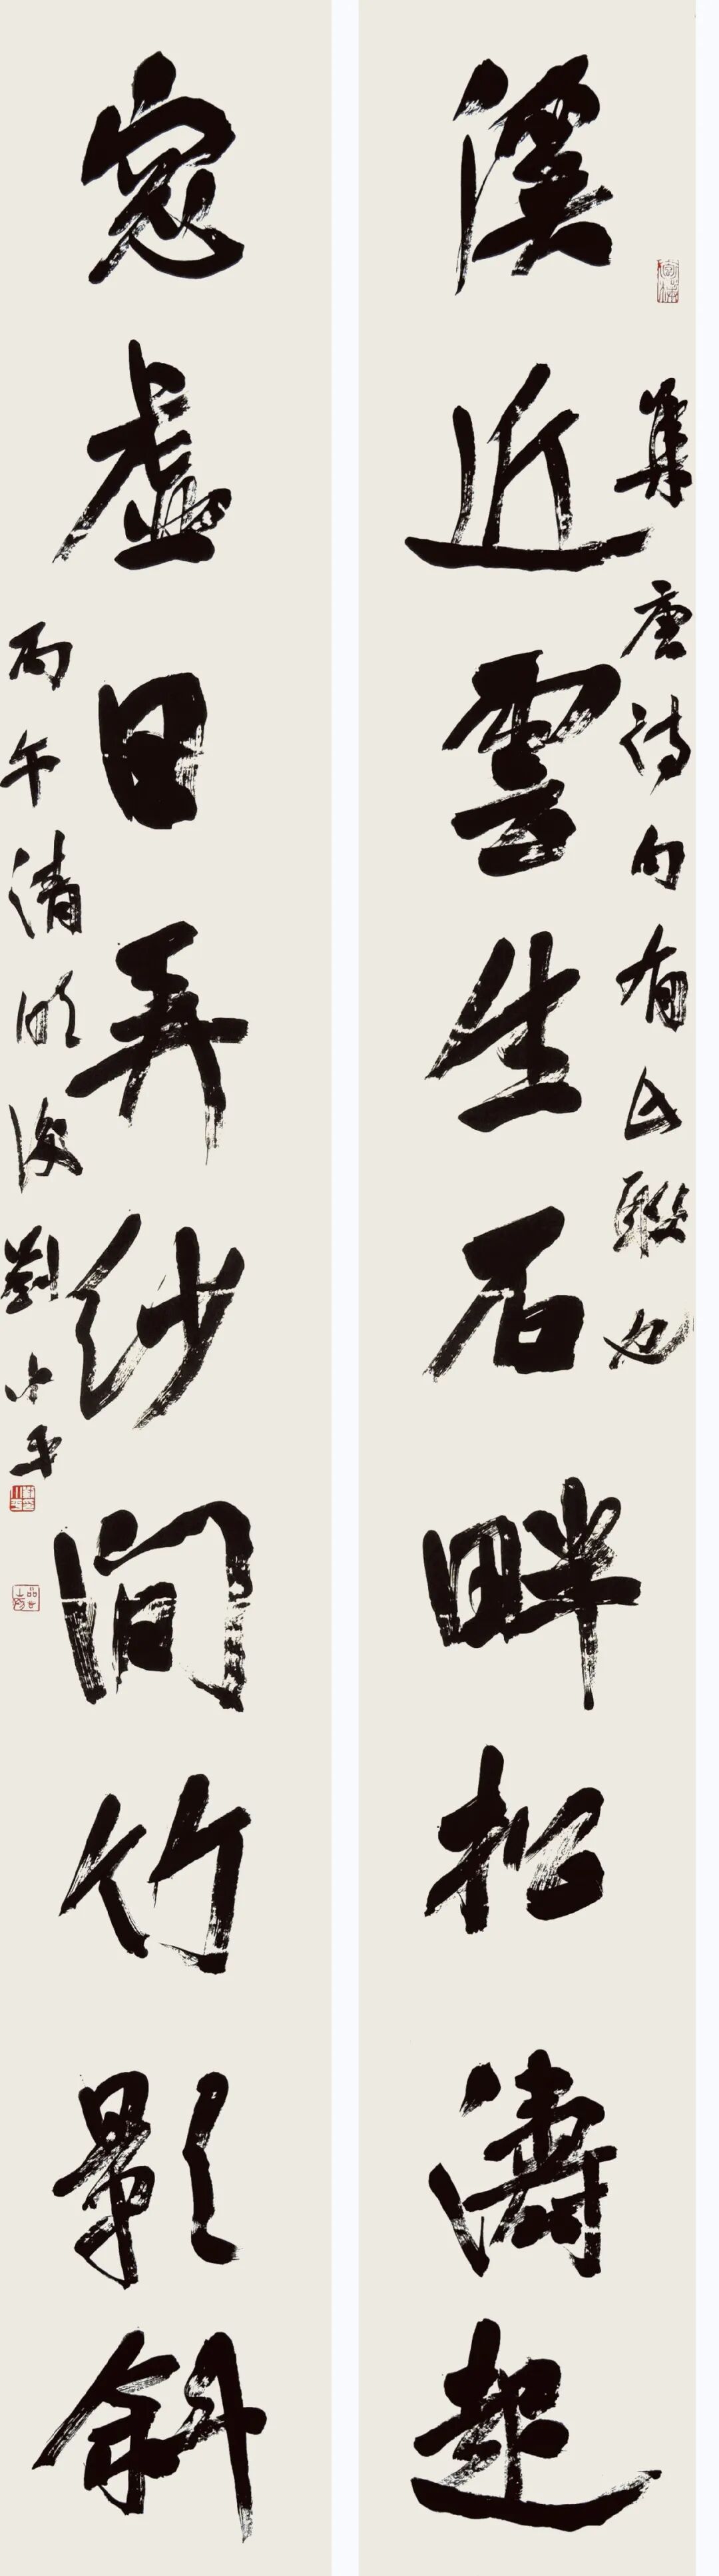 溪近雲生石畔松濤起
集唐詩句有此聯也
窓虛日弄紗間竹影斜
丙午清明後劉小平